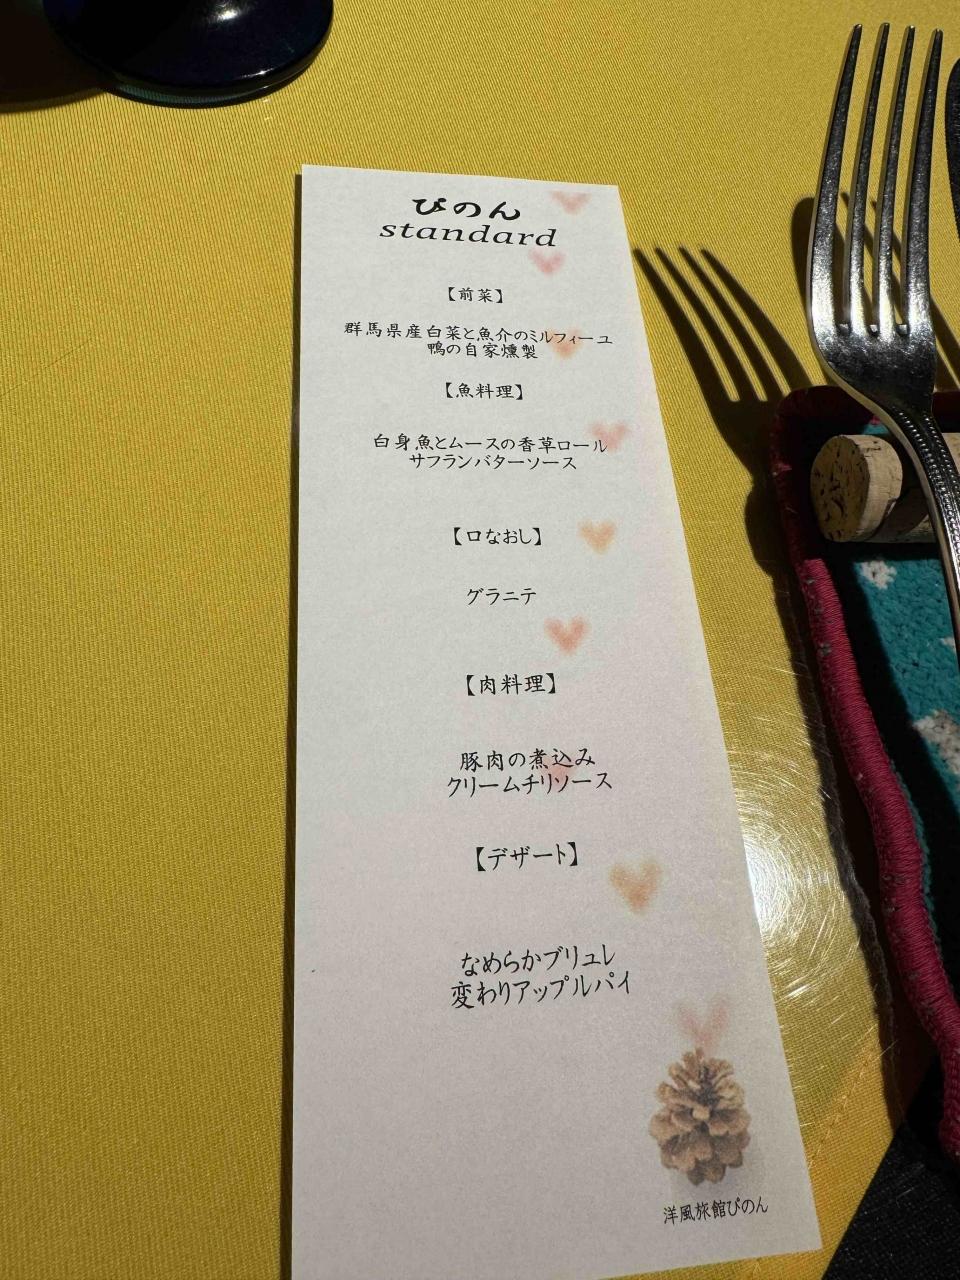 ぴのん
standard
【前菜】
群馬県産白菜と魚介のミルフィーユ
鴨の自家燻製
【魚料理】
白身魚とムースの香草ロール
サフランバターソース
【口なおし】
グラニテ
【肉料理】
豚肉の煮込み
クリームチリソース
【デザート】
なめらかブリュレ
変わりアップルパイ
洋風旅館ぴのん